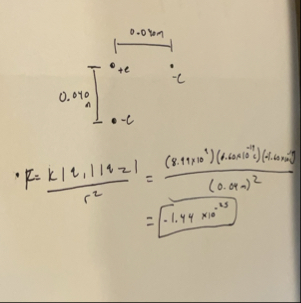 0.030m
+e
-e
0.040
m
-e
• F = k|q₁||q₂| / r² = (8.99×10⁹)(1.60×10⁻¹⁹)(-1.60×10⁻¹⁹) / (0.04m)²
= -1.44 ×10⁻²⁵